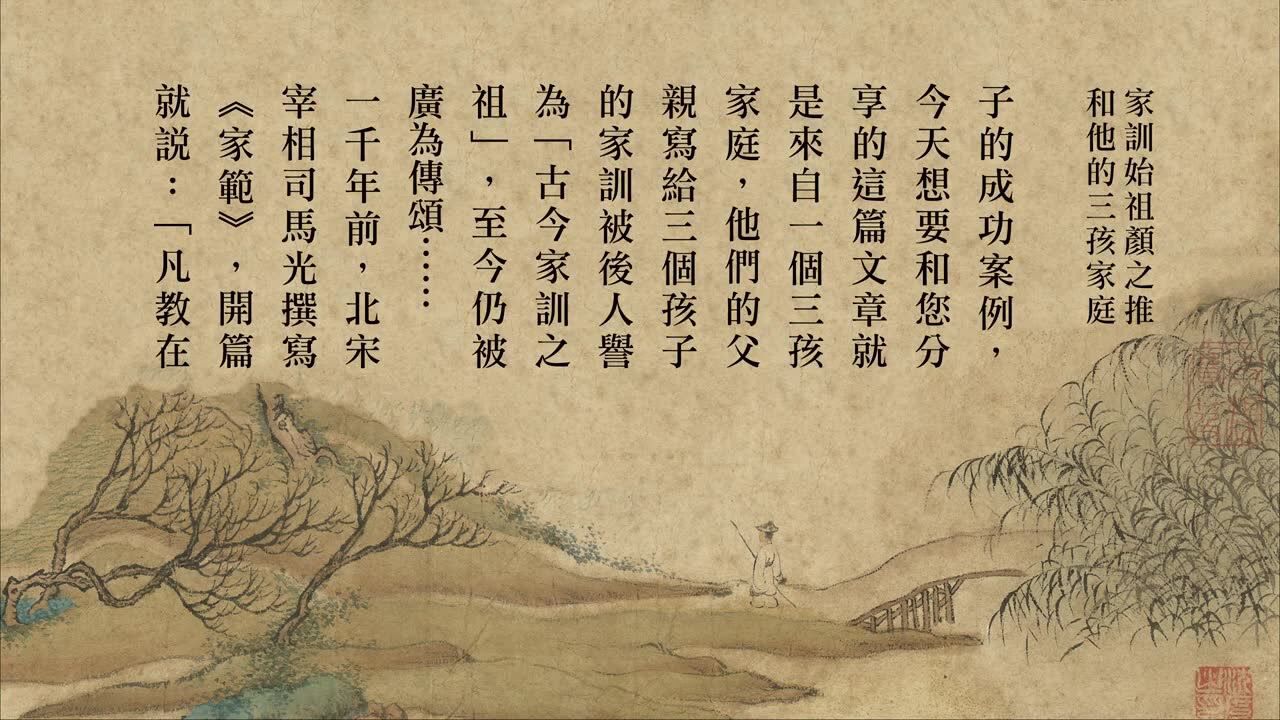 家訓始祖顏之推
和他的三孩家庭
子的成功案例，
今天想要和您分
享的這篇文章就
是來自一個三孩
家庭，他們的父
親寫給三個孩子
的家訓被後人譽
為「古今家訓之
祖」，至今仍被
廣為傳頌……
一千年前，北宋
宰相司馬光撰寫
《家範》，開篇
就説：「凡教在